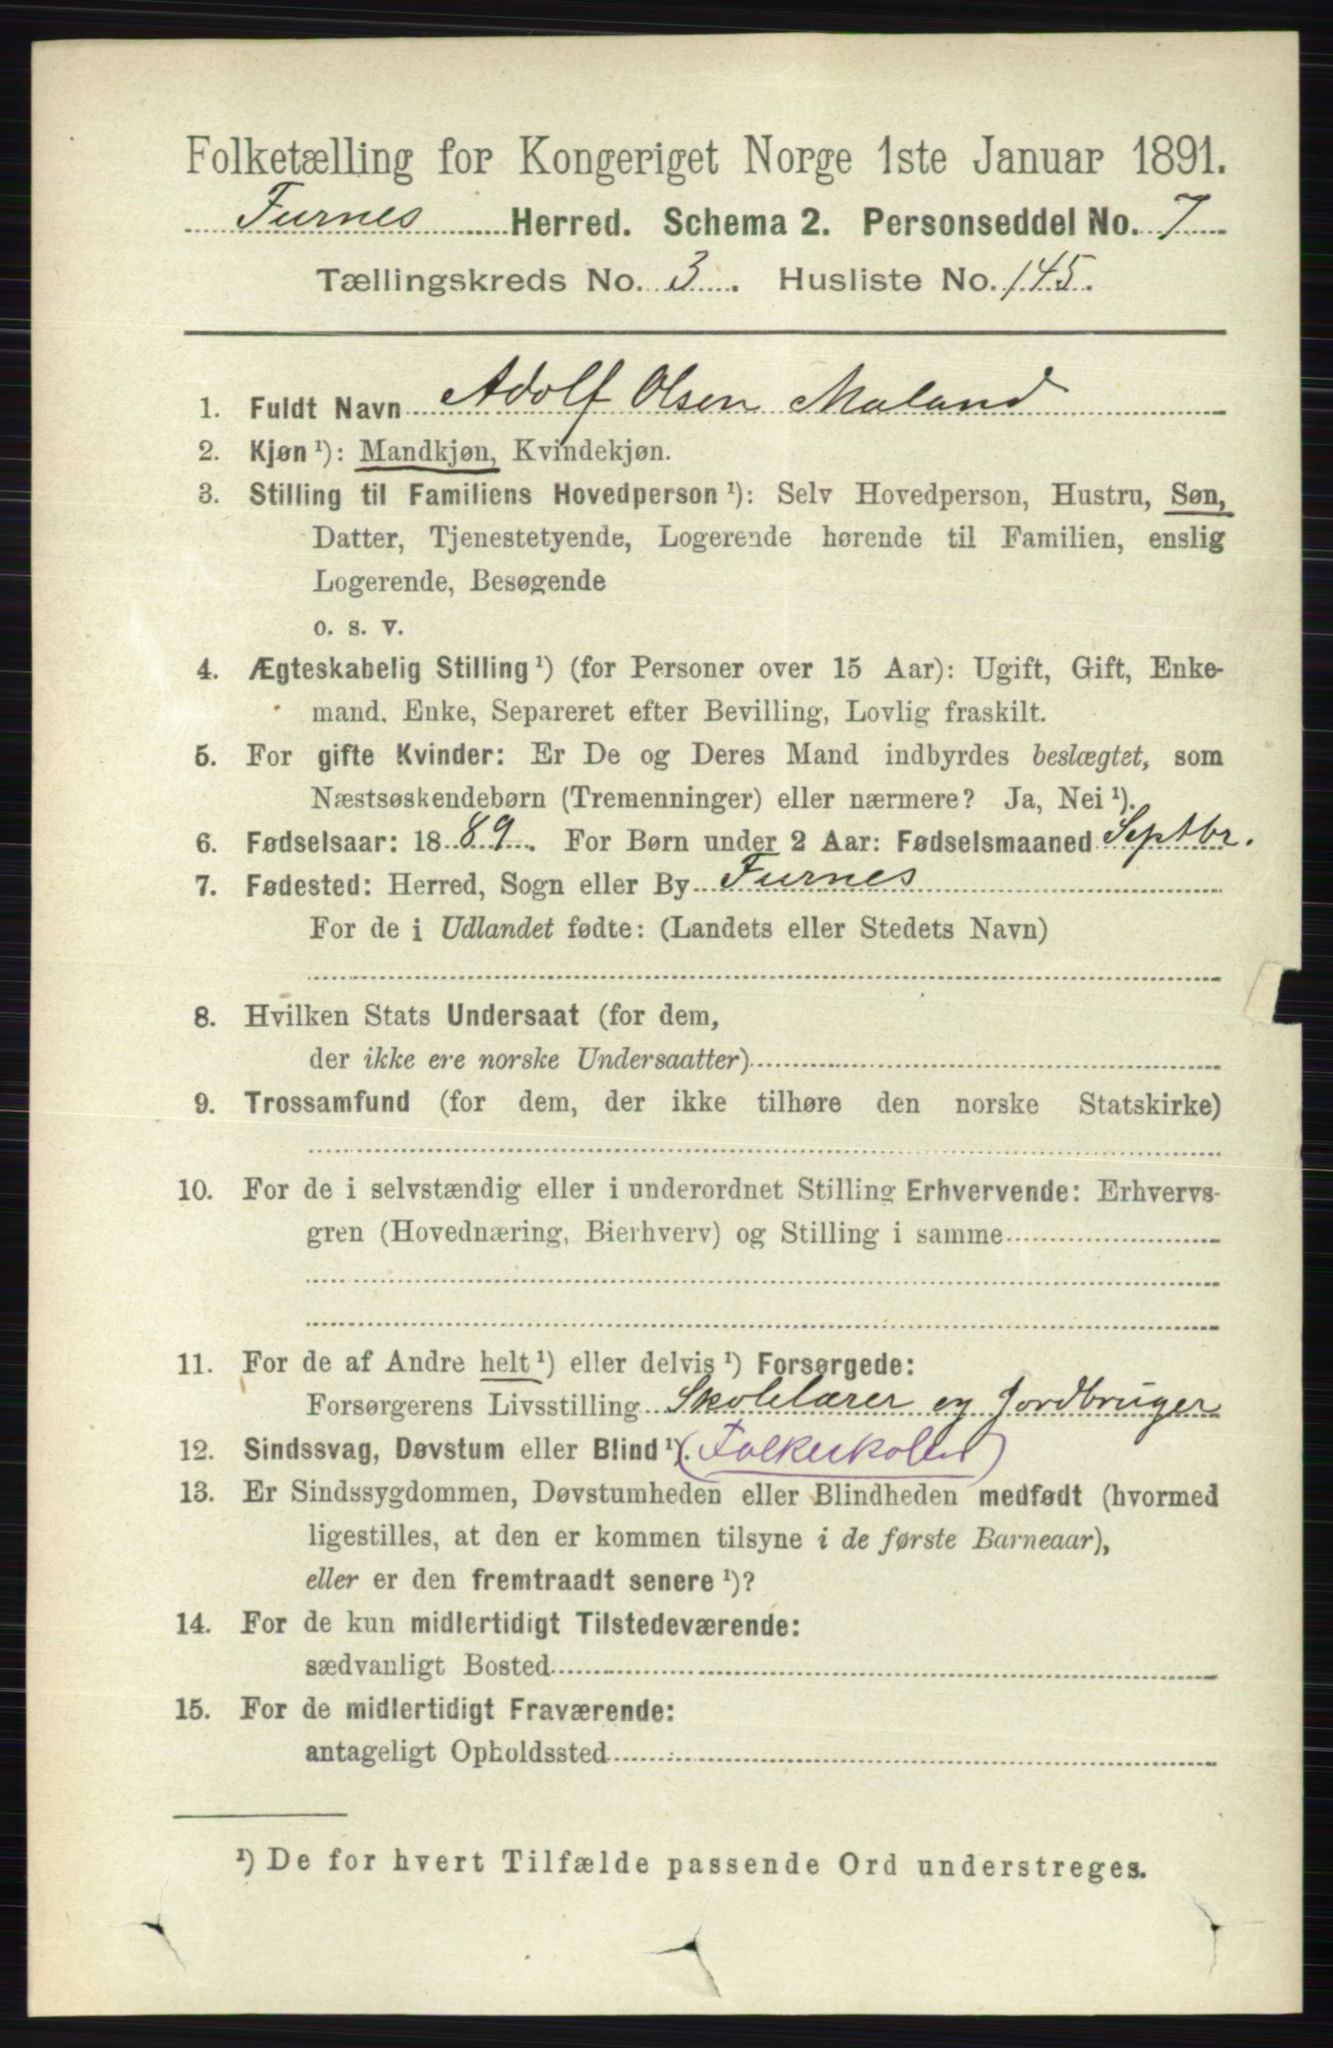 Folketælling for Kongeriget Norge 1ste Januar 1891.
Furnes Herred. Schema 2. Personseddel No. 7
Tællingskreds No. 3. Husliste No. 145.
1. Fuldt Navn Adolf Olsen Maland
2. Kjøn ¹): Mandkjøn, Kvindekjøn.
3. Stilling til Familiens Hovedperson ¹): Selv Hovedperson, Hustru, Søn,
Datter, Tjenestetyende, Logerende hørende til Familien, enslig
Logerende, Besøgende
o. s. v.
4. Ægteskabelig Stilling ¹) (for Personer over 15 Aar): Ugift, Gift, Enke-
mand, Enke, Separeret efter Bevilling, Lovlig fraskilt.
5. For gifte Kvinder: Er De og Deres Mand indbyrdes beslægtet, som
Næstsøskendebørn (Tremenninger) eller nærmere? Ja, Nei ¹).
6. Fødselsaar: 1889. For Børn under 2 Aar: Fødselsmaaned Septbr.
7. Fødested: Herred, Sogn eller By Furnes
For de i Udlandet fødte: (Landets eller Stedets Navn)
8. Hvilken Stats Undersaat (for dem,
der ikke ere norske Undersaatter)
9. Trossamfund (for dem, der ikke tilhøre den norske Statskirke)
10. For de i selvstændig eller i underordnet Stilling Erhvervende: Erhvervs-
gren (Hovednæring, Bierhverv) og Stilling i samme
11. For de af Andre helt ¹) eller delvis ¹) Forsørgede:
Forsørgerens Livsstilling Skolelærer og Jordbruger
12. Sindssvag, Døvstum eller Blind ¹). (Folkeskolen)
13. Er Sindssygdommen, Døvstumheden eller Blindheden medfødt (hvormed
ligestilles, at den er kommen tilsyne i de første Barneaar),
eller er den fremtraadt senere ¹)?
14. For de kun midlertidigt Tilstedeværende:
sædvanligt Bosted
15. For de midlertidigt Fraværende:
antageligt Opholdssted
¹) De for hvert Tilfælde passende Ord understreges.